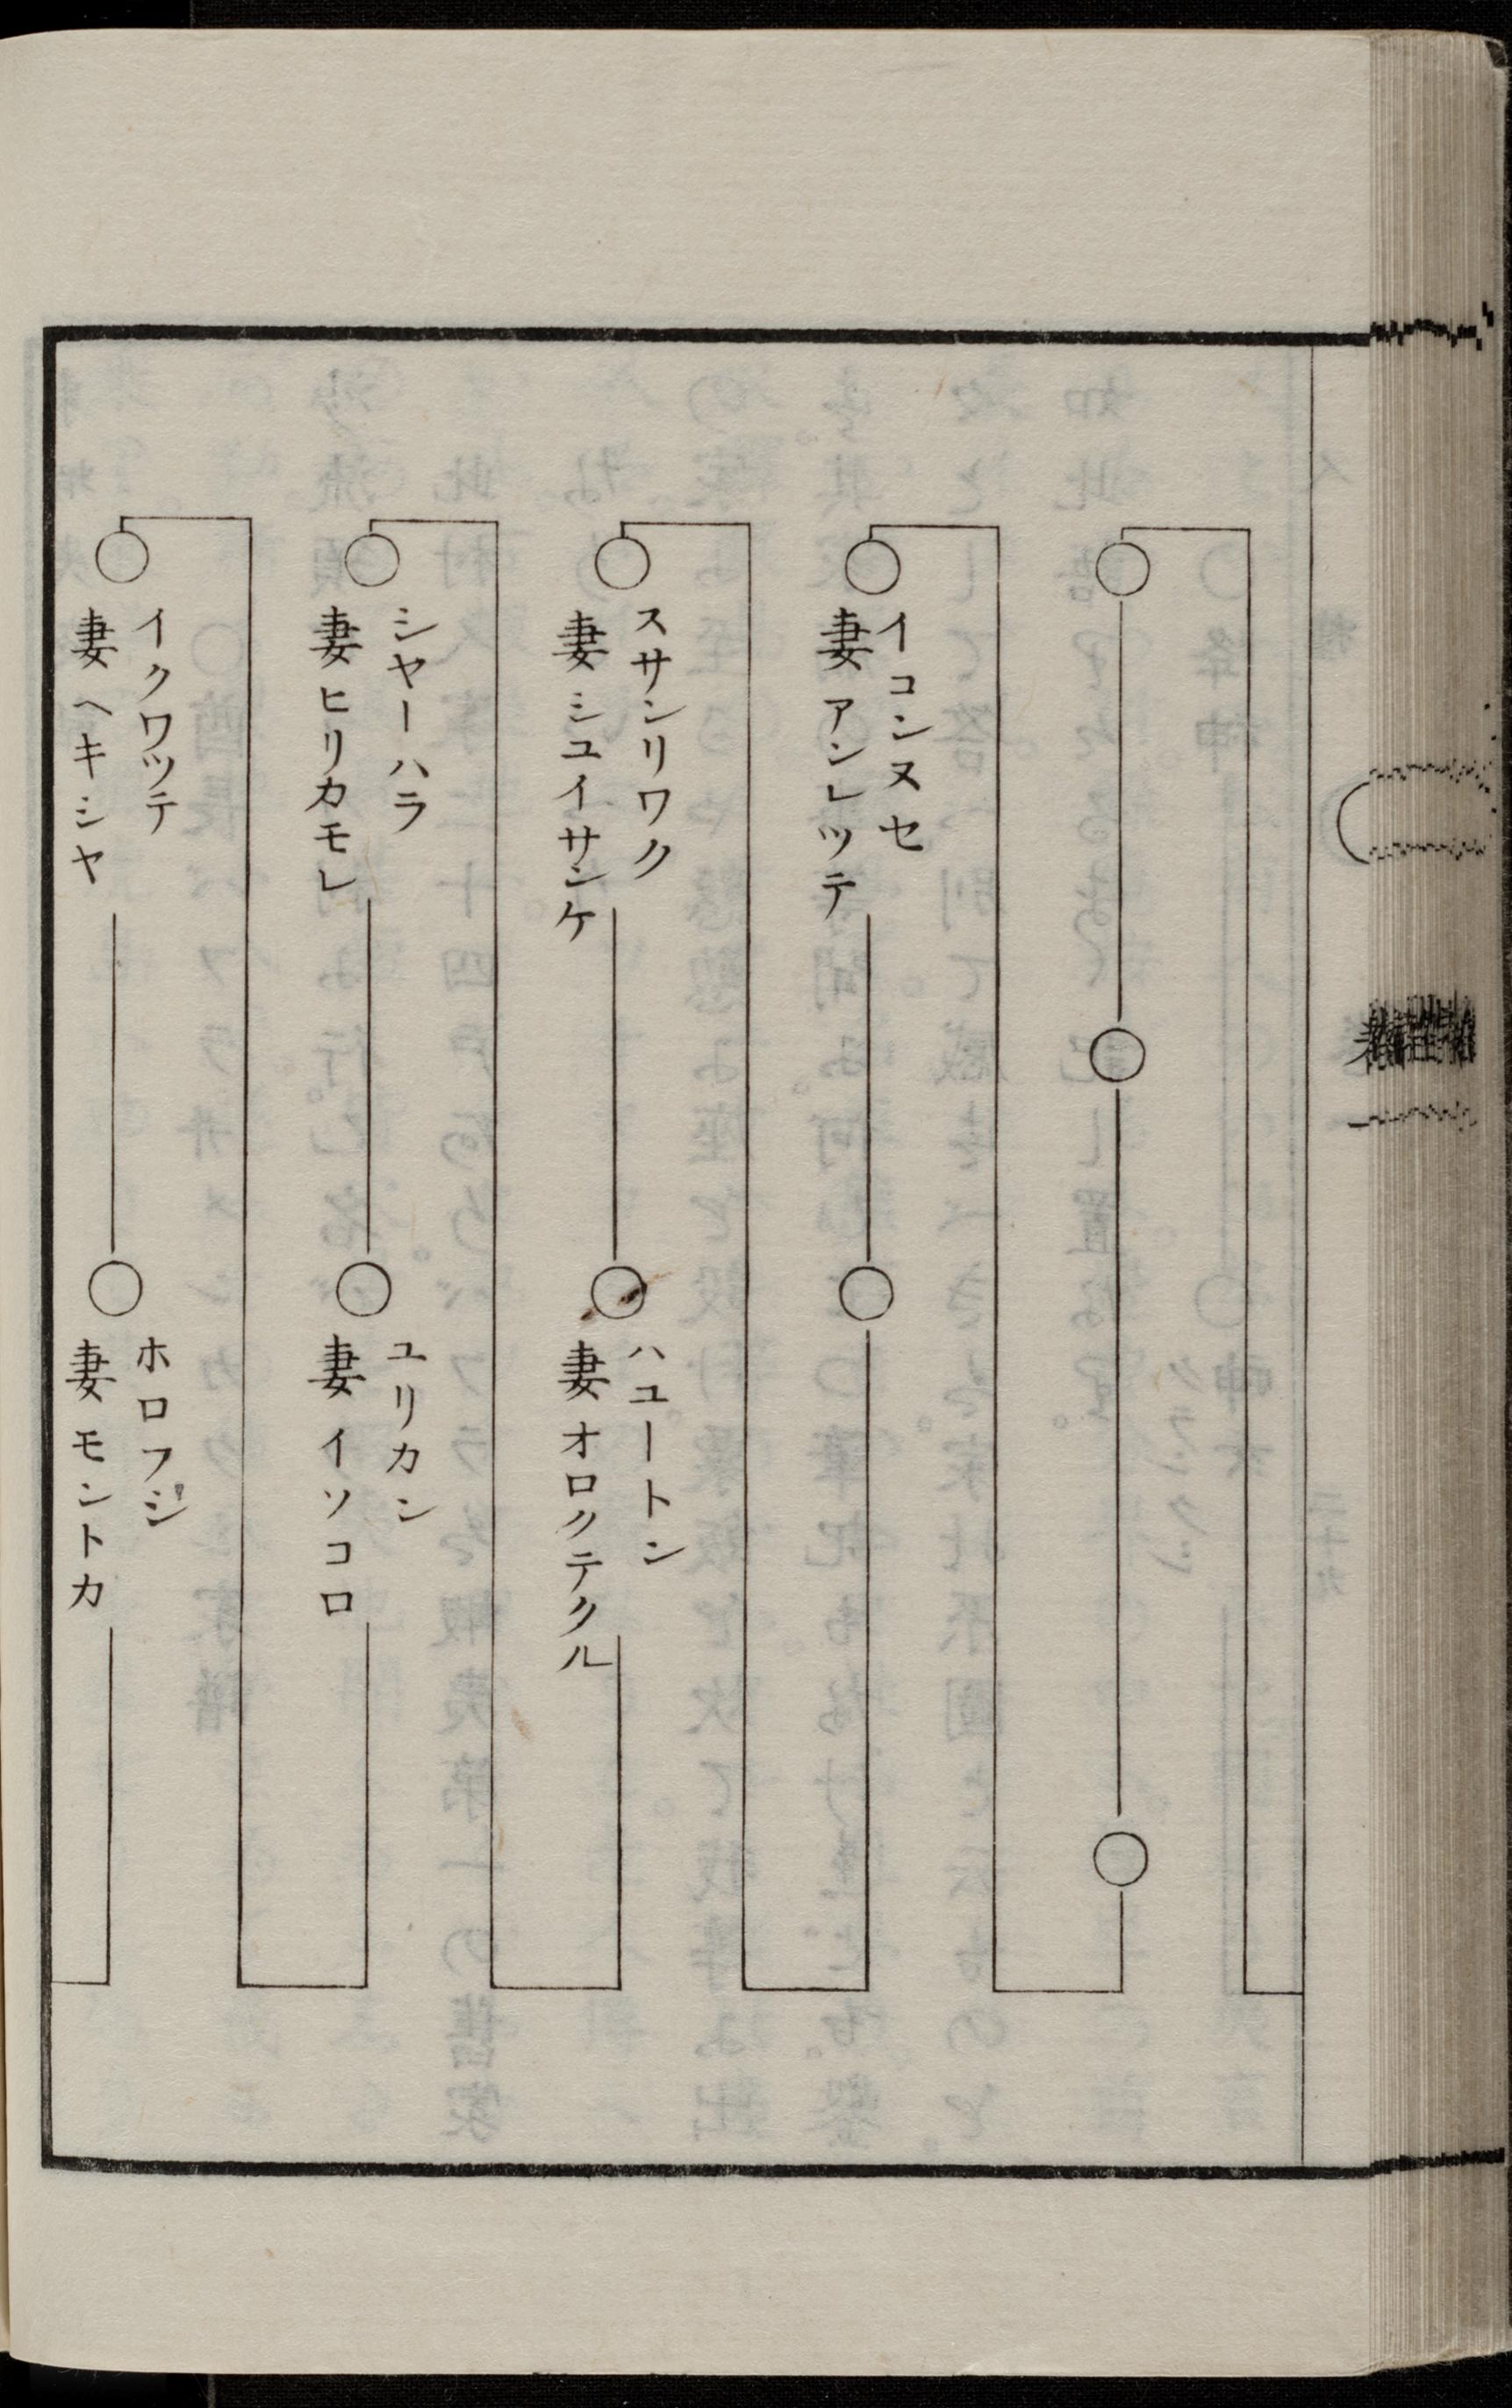 イコンヌセ
妻アンレツテ
スサンリワク
妻シユイサンケ
ハユートン
妻オロクテクル
シヤーハラ
妻ヒリカモレ
ユリカン
妻イソコロ
イクワツテ
妻ヘキシヤ
ホロフジ
妻モントカ